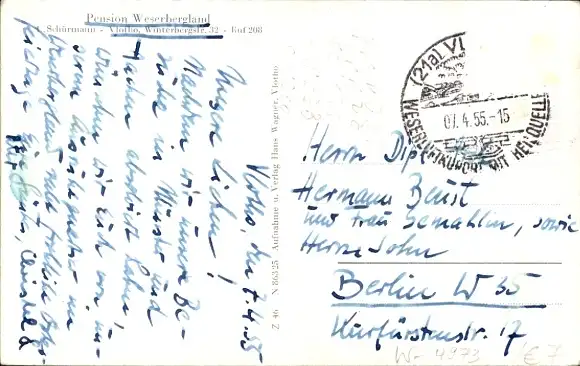 Pension Weserbergland
Schürmann - Vlotho, Winterbergstr. 32 - Ruf 208
Vlotho, den 7.4.55
Unsere Lieben!
Nachdem wir unsere Be-
suche in Münster und
Aachen absolviert haben,
wünschen wir Euch von un-
serem
Weserbergland noch fröhliche Oster-
Z 46 N 86325 Aufnahme u. Verlag Hans Wagner, Vlotho
(21a) Vl
07.4.55.-15
WESERLUFTKURORT MIT HEILQUELLE
Herrn Dipl
Hermann Beust
und Frau Gemahlin, sowie
Herrn Sohn
Berlin W 35
Kurfürstenstr. 17
4973
€7